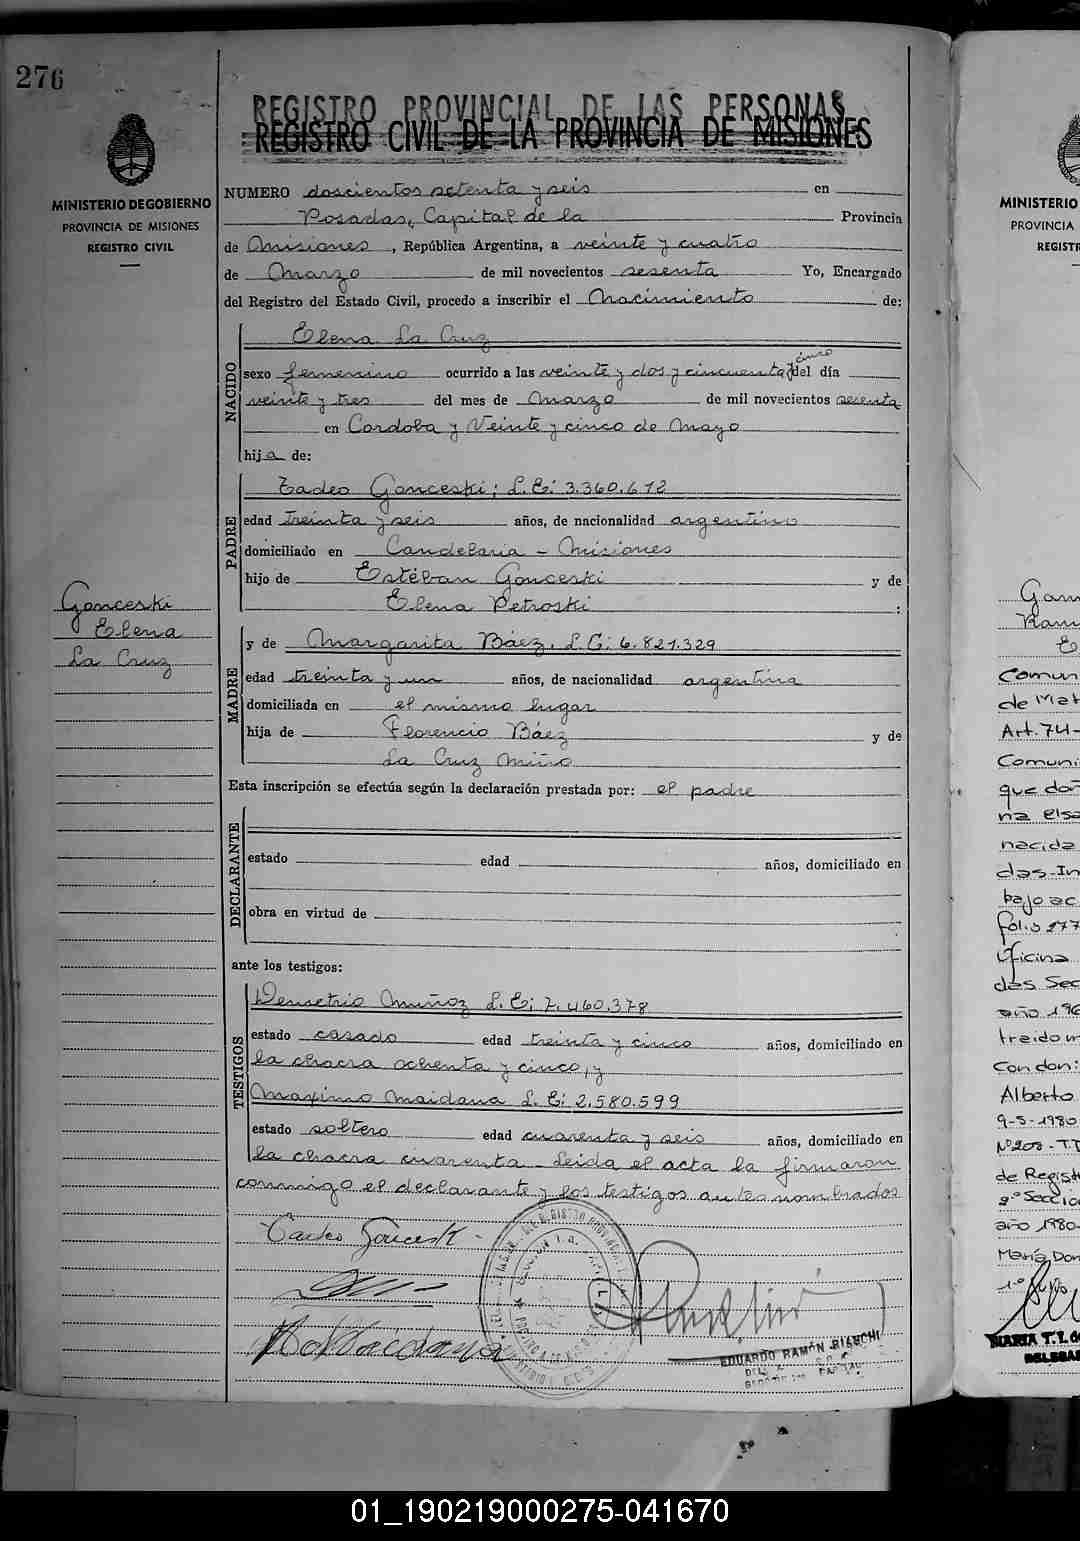 276
REGISTRO PROVINCIAL DE LAS PERSONAS
REGISTRO CIVIL DE LA PROVINCIA DE MISIONES
MINISTERIO DE GOBIERNO
PROVINCIA DE MISIONES
REGISTRO CIVIL
NUMERO doscientos setenta y seis en
Posadas, Capital de la Provincia
de Misiones, República Argentina, a veinte y cuatro
de Marzo de mil novecientos sesenta Yo, Encargado
del Registro del Estado Civil, procedo a inscribir el Nacimiento de:
NACIDO
Elena La Cruz
sexo femenino ocurrido a las veinte y dos y cincuenta y cinco del día
veinte y tres del mes de Marzo de mil novecientos sesenta
en Cordoba y Veinte y cinco de Mayo
hija de:
PADRE
Tadeo Gonceski; L.E: 3.360.612
edad treinta y seis años, de nacionalidad argentino
domiciliado en Candelaria - Misiones
hijo de Estéban Gonceski y de
Elena Petroski :
Gonceski
Elena
La Cruz
MADRE
y de Margarita Báez. L.C: 6.821.329
edad treinta y un años, de nacionalidad argentina
domiciliada en el mismo lugar
hija de Florencio Báez y de
La Cruz Miño
Esta inscripción se efectúa según la declaración prestada por: el padre
DECLARANTE
estado edad años, domiciliado en
obra en virtud de
ante los testigos:
TESTIGOS
Demetrio Muñoz L.E: 7.460.378
estado casado edad treinta y cinco años, domiciliado en
la chacra ochenta y cinco, y
Maximo Maidana L.E: 2.580.599
estado soltero edad cuarenta y seis años, domiciliado en
la chacra cuarenta - Leida el acta la firmaron
conmigo el declarante y los testigos antes nombrados
Tadeo Goncesk -
EDUARDO RAMÓN BIANCHI
MINISTERIO
PROVINCIA
REGISTR
Comun
de Mat
Art. 74-
Comuni
que don
na elsa
nacida
das-In
bajo ac
folio 277
Oficina
das Sec
año 196
traido m
Con don:
Alberto
9-5-1980
Nº 208 - T.
de Regist
2º Seccio
año 1980-
María Don
MARIA T. I. G
DELEGA
01_190219000275-041670